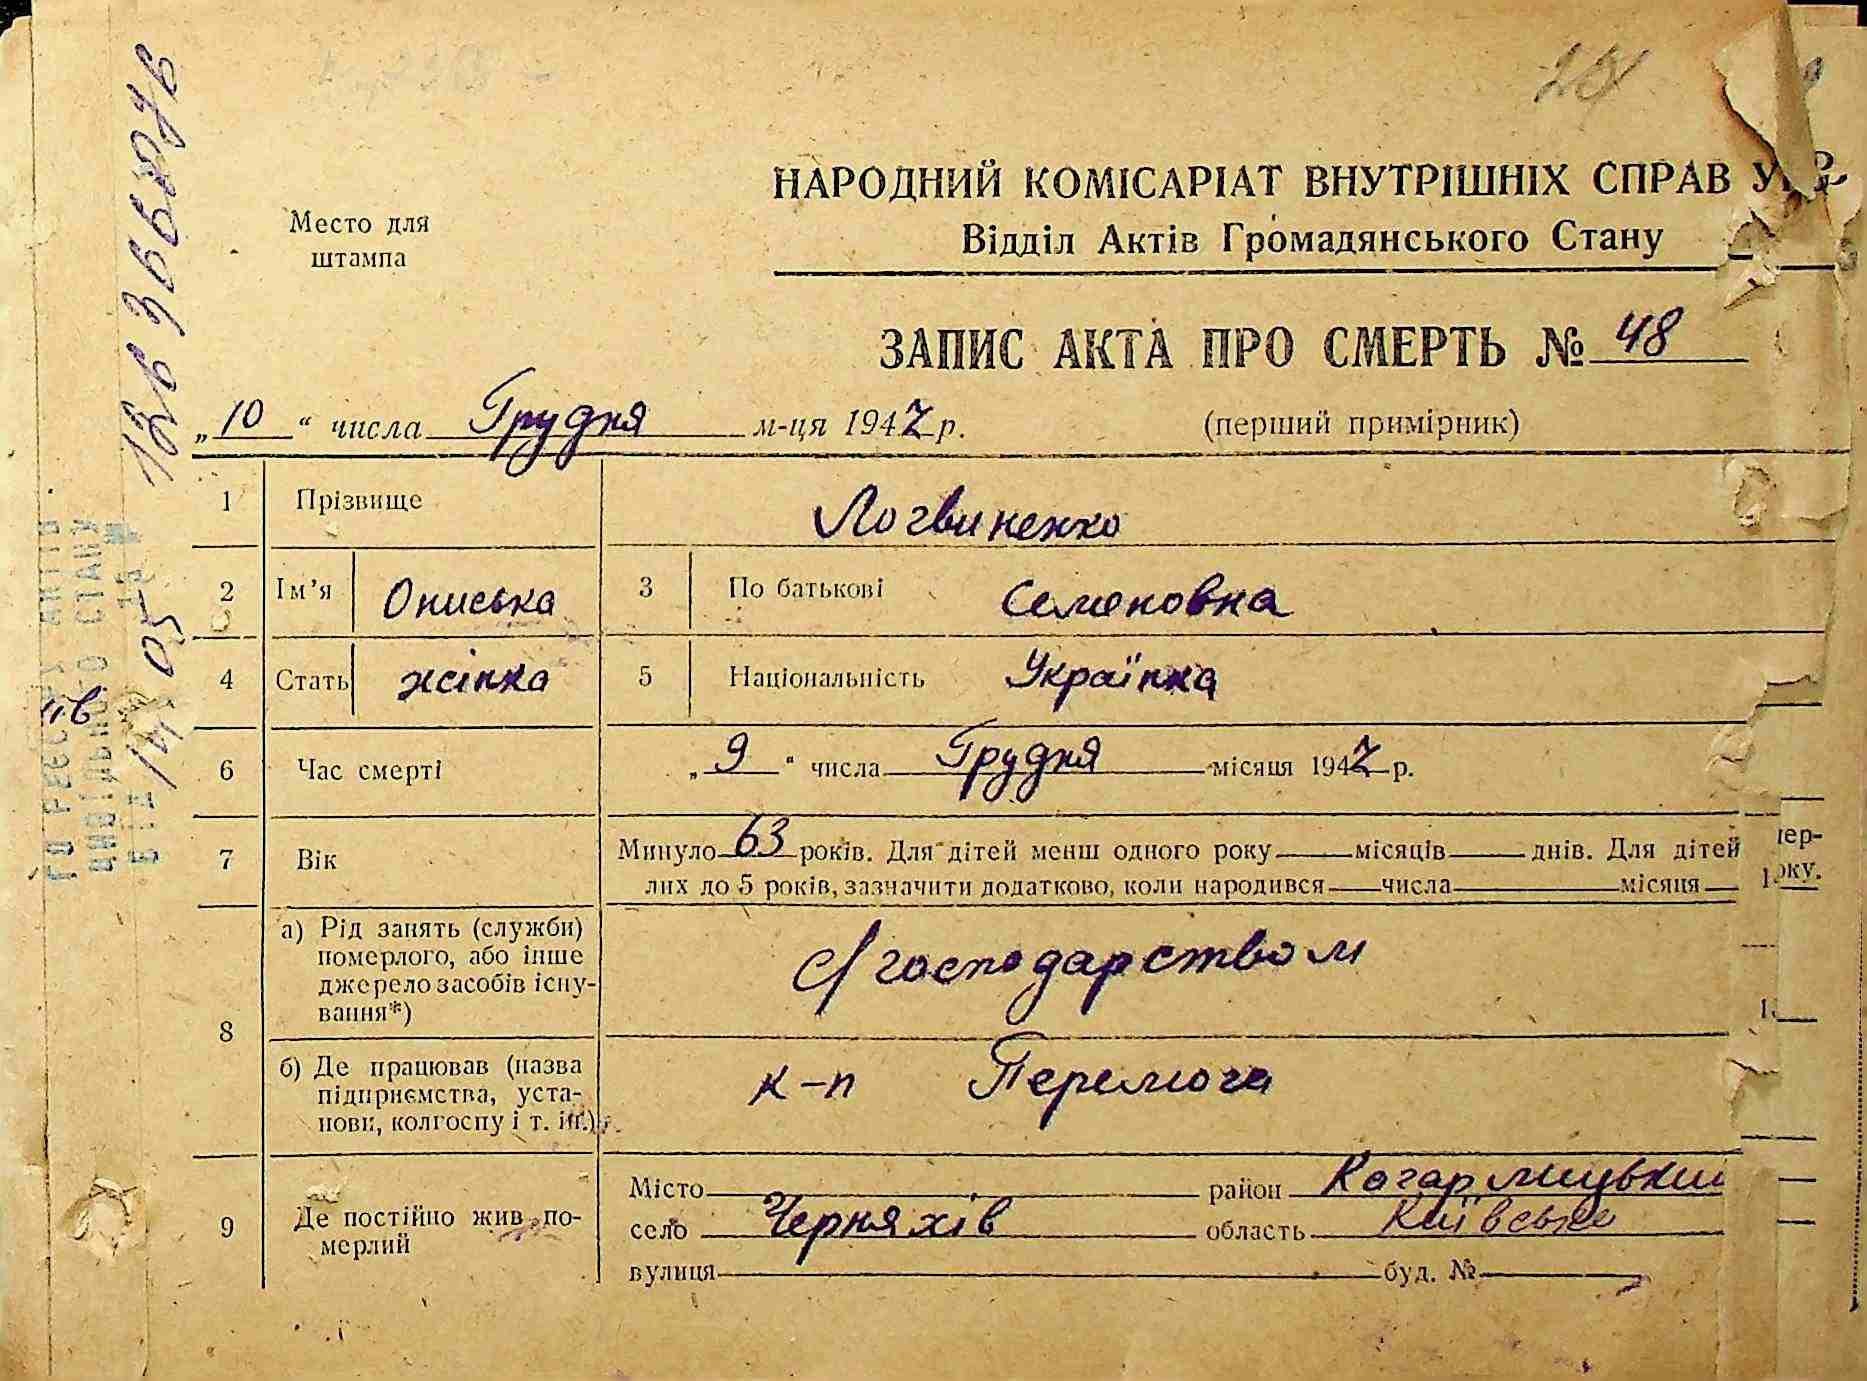 НАРОДНИЙ КОМІСАРІАТ ВНУТРІШНІХ СПРАВ
Відділ Актів Громадянського Стану
Место для
штампа
ЗАПИС АКТА ПРО СМЕРТЬ № 48
„10“ числа Грудня м-ця 1947 р. (перший примірник)
1 Прізвище Логвиненко
2 Ім’я Описька 3 По батькові Семеновна
4 Стать жінка 5 Національність Українка
6 Час смерті „9“ числа Грудня місяця 1947 р.
7 Вік Минуло 63 років. Для дітей менш одного року місяців днів. Для дітей
лих до 5 років, зазначити додатково, коли народився числа місяця
8 а) Рід занять (служби)
померлого, або інше
джерело засобів існу-
вання*)
с/господарством
б) Де працював (назва
підприємства, уста-
нови, колгоспу і т. ін.)
к-п Перемога
9 Де постійно жив по-
мерлий
Місто район Кагарлицький
село Черняхів область Київська
вулиця буд. №